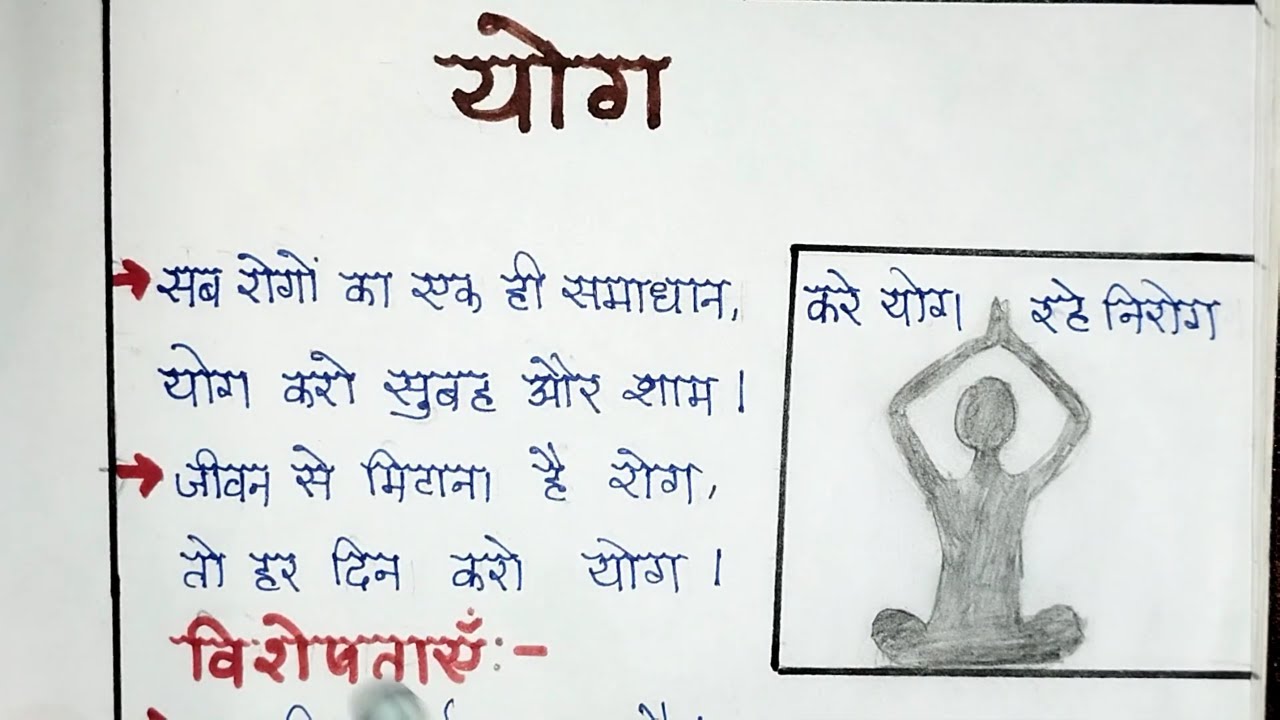 योग
सब रोगों का एक ही समाधान,
योग करो सुबह और शाम।
जीवन से मिटाना है रोग,
तो हर दिन करो योग।
करे योग रहे निरोग
विशेषताएँ:-